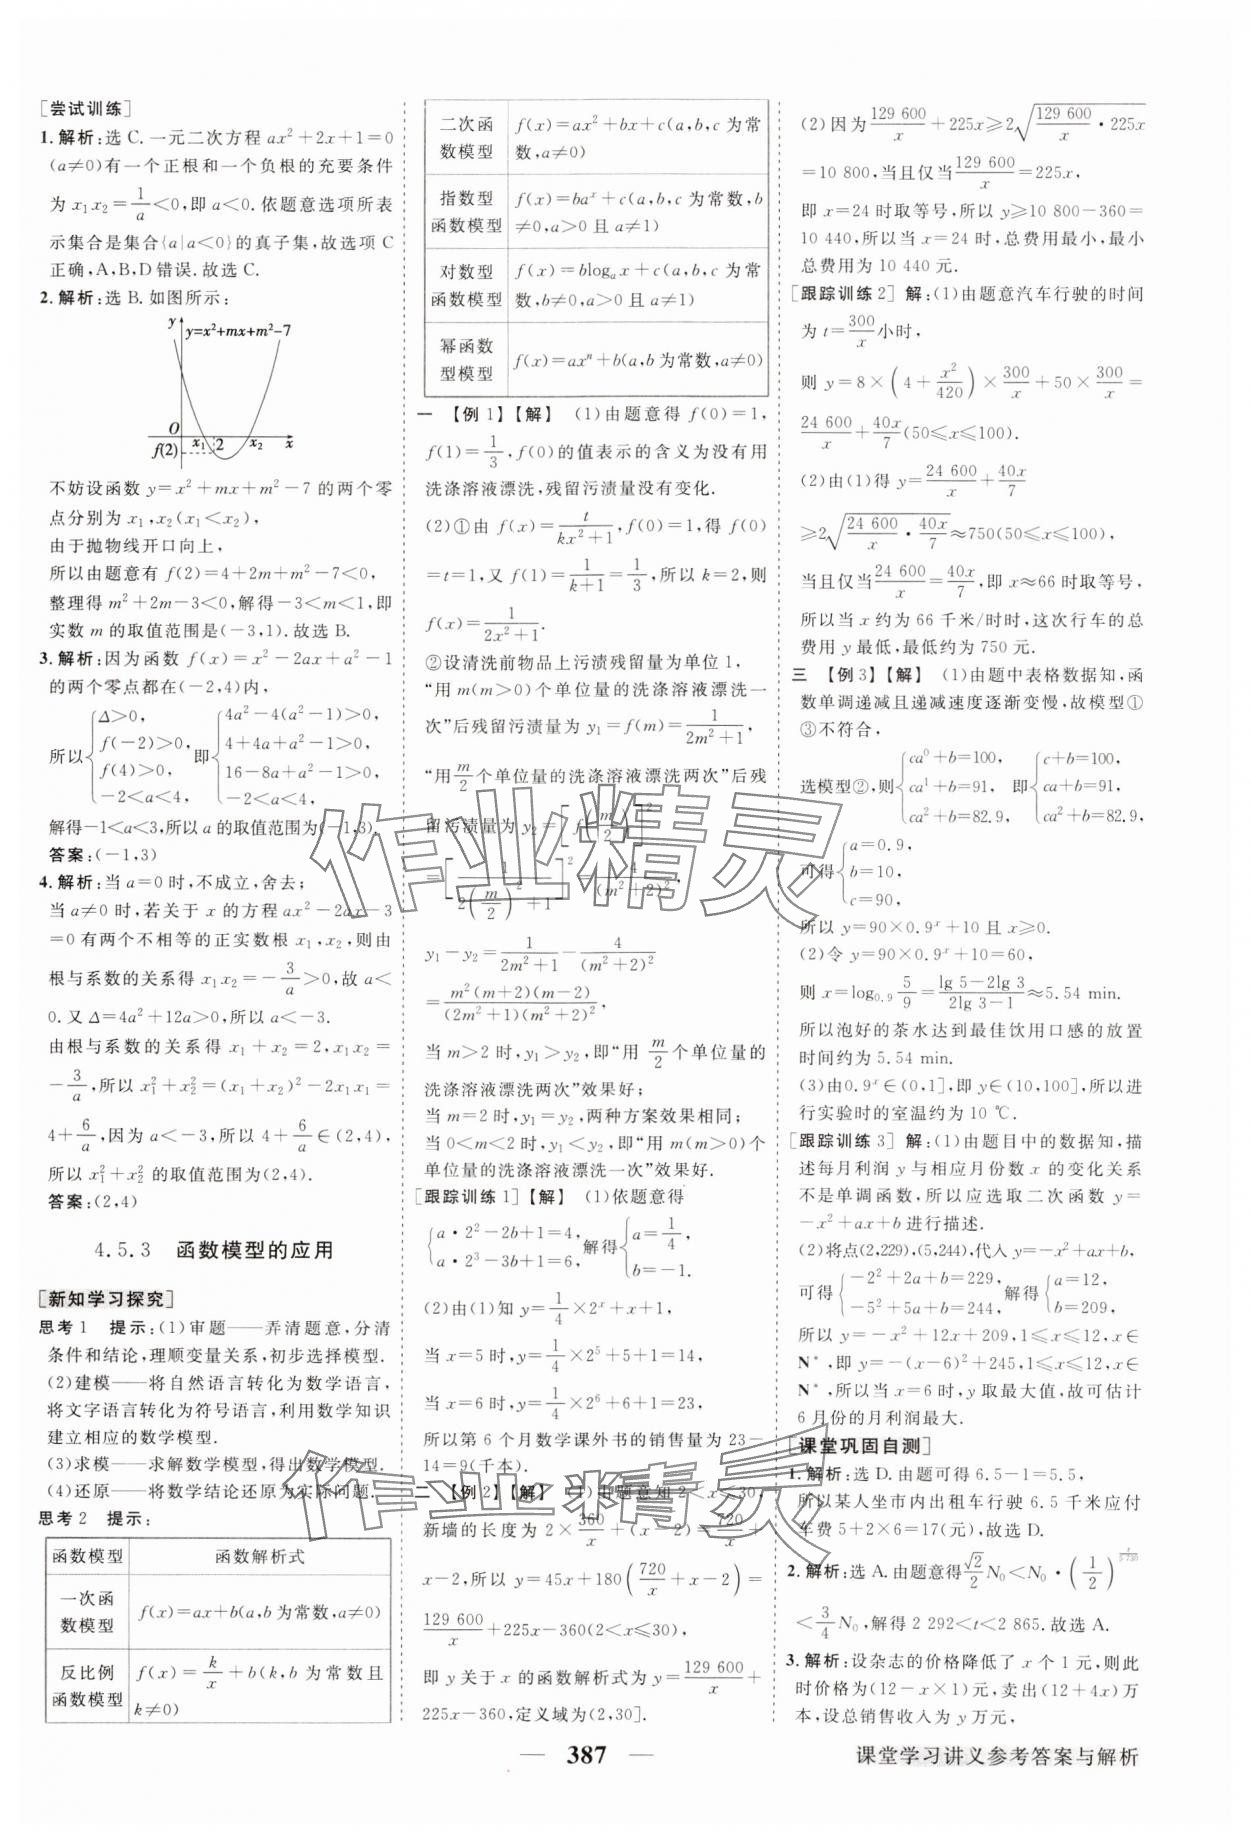 [尝试训练]
1. 解析:选 C. 一元二次方程 ax²+2x+1=0
(a≠0)有一个正根和一个负根的充要条件
为 x₁x₂=1/a<0,即 a<0. 依题意选项所表
示集合是集合{a|a<0}的真子集,故选项 C
正确,A,B,D错误. 故选 C.
2. 解析:选 B. 如图所示:
y
y=x²+mx+m²-7
O
x₁ 2 x₂ x
f(2)
不妨设函数 y=x²+mx+m²-7 的两个零
点分别为 x₁,x₂(x₁<x₂),
由于抛物线开口向上,
所以由题意有 f(2)=4+2m+m²-7<0,
整理得 m²+2m-3<0,解得-3<m<1,即
实数 m 的取值范围是(-3,1). 故选 B.
3. 解析:因为函数 f(x)=x²-2ax+a²-1
的两个零点都在(-2,4)内,
所以{Δ>0, f(-2)>0, f(4)>0, -2<a<4, 即{4a²-4(a²-1)>0, 4+4a+a²-1>0, 16-8a+a²-1>0, -2<a<4,
解得-1<a<3,所以 a 的取值范围为(-1,3).
答案:(-1,3)
4. 解析:当 a=0 时,不成立,舍去;
当 a≠0 时,若关于 x 的方程 ax²-2ax-3
=0 有两个不相等的正实数根 x₁,x₂,则由
根与系数的关系得 x₁x₂=-3/a>0,故 a<
0. 又 Δ=4a²+12a>0,所以 a<-3.
由根与系数的关系得 x₁+x₂=2,x₁x₂=
-3/a,所以 x₁²+x₂²=(x₁+x₂)²-2x₁x₁=
4+6/a,因为 a<-3,所以 4+6/a∈(2,4),
所以 x₁²+x₂² 的取值范围为(2,4).
答案:(2,4)
4.5.3 函数模型的应用
[新知学习探究]
思考 1 提示:(1)审题——弄清题意,分清
条件和结论,理顺变量关系,初步选择模型.
(2)建模——将自然语言转化为数学语言,
将文字语言转化为符号语言,利用数学知识
建立相应的数学模型.
(3)求模——求解数学模型,得出数学模型.
(4)还原——将数学结论还原为实际问题.
思考 2 提示:
函数模型 函数解析式
一次函数模型 f(x)=ax+b(a,b 为常数,a≠0)
反比例函数模型 f(x)=k/x+b(k,b 为常数且 k≠0)
二次函数模型 f(x)=ax²+bx+c(a,b,c 为常数,a≠0)
指数型函数模型 f(x)=baˣ+c(a,b,c 为常数,b≠0,a>0 且 a≠1)
对数型函数模型 f(x)=blogₐx+c(a,b,c 为常数,b≠0,a>0 且 a≠1)
幂函数型模型 f(x)=axⁿ+b(a,b 为常数,a≠0)
一 【例 1】【解】 (1)由题意得 f(0)=1,
f(1)=1/3,f(0)的值表示的含义为没有用
洗涤溶液漂洗,残留污渍量没有变化.
(2)①由 f(x)=t/(kx²+1),f(0)=1,得 f(0)
=t=1,又 f(1)=1/(k+1)=1/3,所以 k=2,则
f(x)=1/(2x²+1).
②设清洗前物品上污渍残留量为单位 1,
“用 m(m>0)个单位量的洗涤溶液漂洗一
次”后残留污渍量为 y₁=f(m)=1/(2m²+1),
“用 m/2 个单位量的洗涤溶液漂洗两次”后残
留污渍量为 y₂=[f(m/2)]²
=[1/(2(m/2)²+1)]²=4/(m²+2)²,
y₁-y₂=1/(2m²+1)-4/(m²+2)²
=m²(m+2)(m-2)/((2m²+1)(m²+2)²),
当 m>2 时,y₁>y₂,即“用 m/2 个单位量的
洗涤溶液漂洗两次”效果好;
当 m=2 时,y₁=y₂,两种方案效果相同;
当 0<m<2 时,y₁<y₂,即“用 m(m>0)个
单位量的洗涤溶液漂洗一次”效果好.
[跟踪训练 1]【解】 (1)依题意得
{a·2²-2b+1=4, a·2³-3b+1=6, 解得{a=1/4, b=-1.
(2)由(1)知 y=1/4×2ˣ+x+1,
当 x=5 时,y=1/4×2⁵+5+1=14,
当 x=6 时,y=1/4×2⁶+6+1=23,
所以第 6 个月数学课外书的销售量为 23-
14=9(千本).
二 【例 2】【解】 (1)由题意知 2<x≤30,
新墙的长度为 2×360/x+(x-2)=720/x+
x-2,所以 y=45x+180(720/x+x-2)=
129 600/x+225x-360(2<x≤30),
即 y 关于 x 的函数解析式为 y=129 600/x+
225x-360,定义域为(2,30].
(2)因为 129 600/x+225x≥2√(129 600/x·225x)
=10 800,当且仅当 129 600/x=225x,
即 x=24 时取等号,所以 y≥10 800-360=
10 440,所以当 x=24 时,总费用最小,最小
总费用为 10 440 元.
[跟踪训练 2] 解:(1)由题意汽车行驶的时间
为 t=300/x 小时,
则 y=8×(4+x²/420)×300/x+50×300/x=
24 600/x+40x/7(50≤x≤100).
(2)由(1)得 y=24 600/x+40x/7
≥2√(24 600/x·40x/7)≈750(50≤x≤100),
当且仅当 24 600/x=40x/7,即 x≈66 时取等号,
所以当 x 约为 66 千米/时时,这次行车的总
费用 y 最低,最低约为 750 元.
三 【例 3】【解】 (1)由题中表格数据知,函
数单调递减且递减速度逐渐变慢,故模型①
③不符合,
选模型②,则{ca⁰+b=100, ca¹+b=91, ca²+b=82.9, 即{c+b=100, ca+b=91, ca²+b=82.9,
可得{a=0.9, b=10, c=90,
所以 y=90×0.9ˣ+10 且 x≥0.
(2)令 y=90×0.9ˣ+10=60,
则 x=log₀.₉ 5/9=(lg 5-2lg 3)/(2lg 3-1)≈5.54 min.
所以泡好的茶水达到最佳饮用口感的放置
时间约为 5.54 min.
(3)由 0.9ˣ∈(0,1],即 y∈(10,100],所以进
行实验时的室温约为 10 ℃.
[跟踪训练 3] 解:(1)由题目中的数据知,描
述每月利润 y 与相应月份数 x 的变化关系
不是单调函数,所以应选取二次函数 y=
-x²+ax+b 进行描述.
(2)将点(2,229),(5,244),代入 y=-x²+ax+b,
可得{-2²+2a+b=229, -5²+5a+b=244, 解得{a=12, b=209,
所以 y=-x²+12x+209,1≤x≤12,x∈
N*,即 y=-(x-6)²+245,1≤x≤12,x∈
N*,所以当 x=6 时,y 取最大值,故可估计
6 月份的月利润最大.
[课堂巩固自测]
1. 解析:选 D. 由题可得 6.5-1=5.5,
所以某人坐市内出租车行驶 6.5 千米应付
车费 5+2×6=17(元),故选 D.
2. 解析:选 A. 由题意得 √2/2 N₀<N₀·(1/2)^(t/5 730)
<3/4 N₀,解得 2 292<t<2 865. 故选 A.
3. 解析:设杂志的价格降低了 x 个 1 元,则此
时价格为(12-x×1)元,卖出(12+4x)万
本,设总销售收入为 y 万元,
— 387 —
课堂学习讲义参考答案与解析
作业精灵
作业精灵